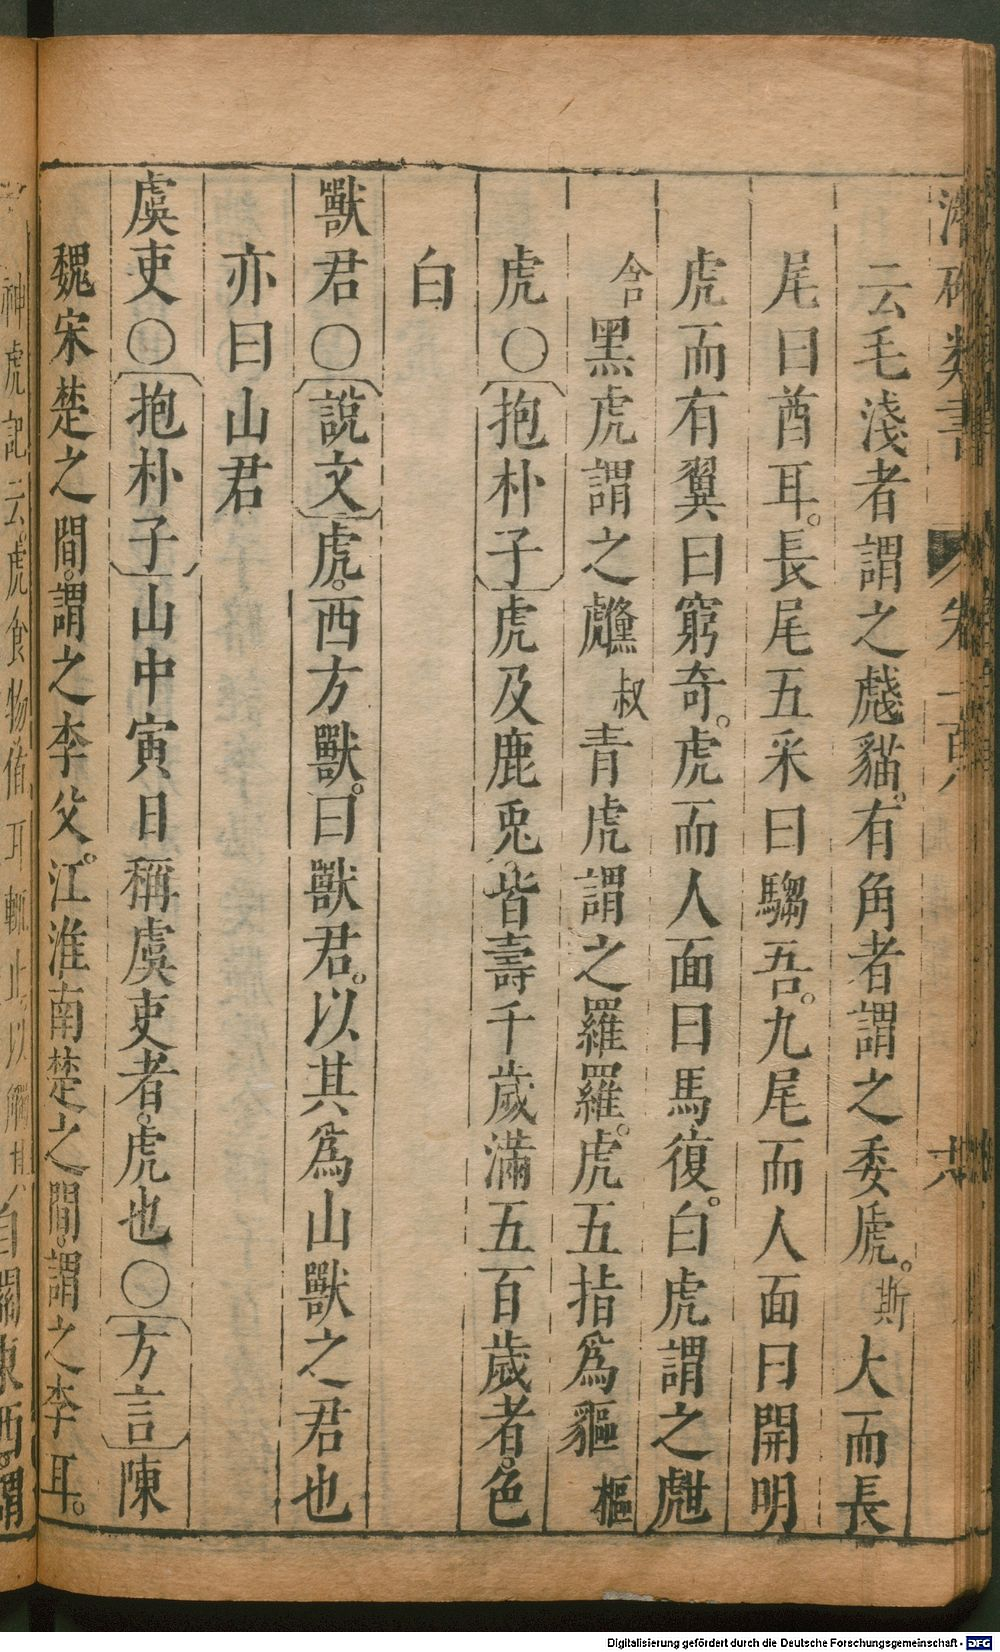 云毛淺者謂之虥貓。有角者謂之委虒。斯大而長
尾曰酋耳。長尾五采曰騶吾。九尾而人面曰開明
虎而有翼曰窮奇。虎而人面曰馬復。白虎謂之甝
含黑虎謂之虪叔青虎謂之羅羅。虎五指爲貙樞
虎○抱朴子虎及鹿兎。皆壽千歲滿五百歲者。色
白
獸君○說文虎。西方獸。曰獸君。以其爲山獸之君也
亦曰山君
虞吏○抱朴子山中寅日稱虞吏者。虎也○方言陳
魏宋楚之間。謂之李父。江淮南楚。之間。謂之李耳。
神虎記云。虎食物値耳輒止以
自關東西。謂
Digitalisierung gefördert durch die Deutsche Forschungsgemeinschaft - DFG